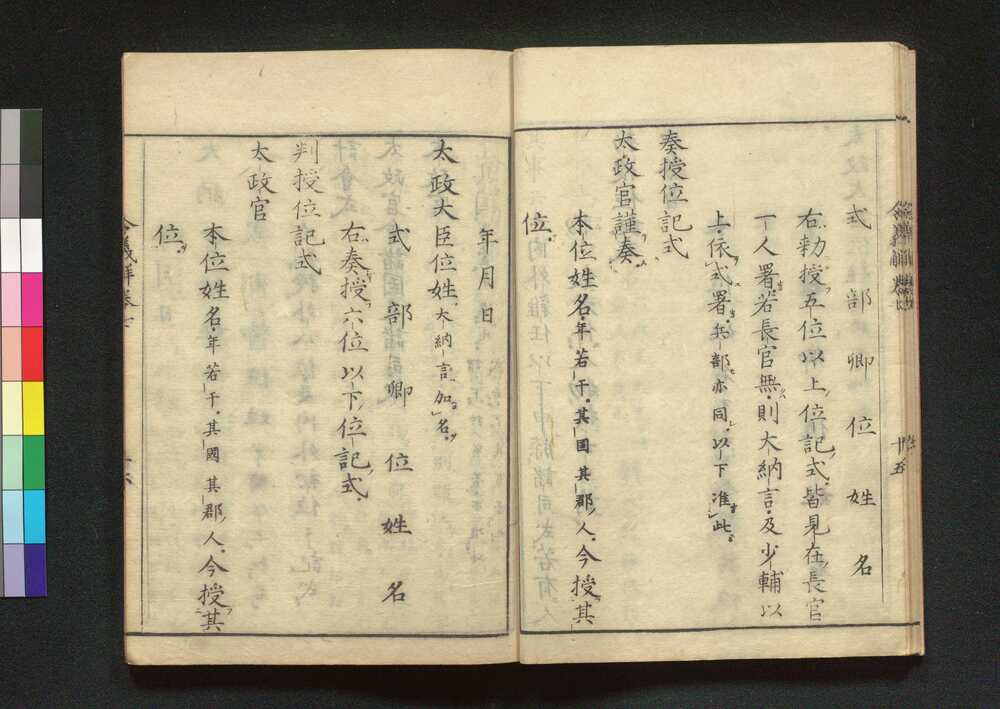 式部卿位姓名
右勅授五位以上位記式皆見在長官
一人署若長官無則大納言及少輔以
上依式署兵部亦同以下准此
奏授位記式
太政官謹奏
本位姓名年若干其國其郡人今授其
位
年月日
太政大臣位姓大納言加名
式部卿位姓名
右奏授六位以下位記式
判授位記式
太政官
本位姓名年若干其國其郡人今授其
位